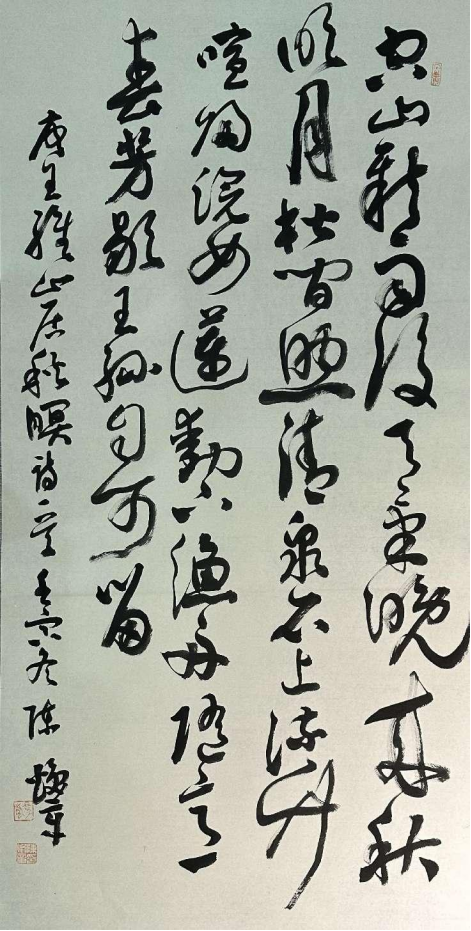 空山新雨後天氣晚來秋
明月松間照清泉石上流竹
喧歸浣女蓮動下漁舟隨意
春芳歇王孫自可留
唐王維山居秋暝詩一首壬寅冬陳